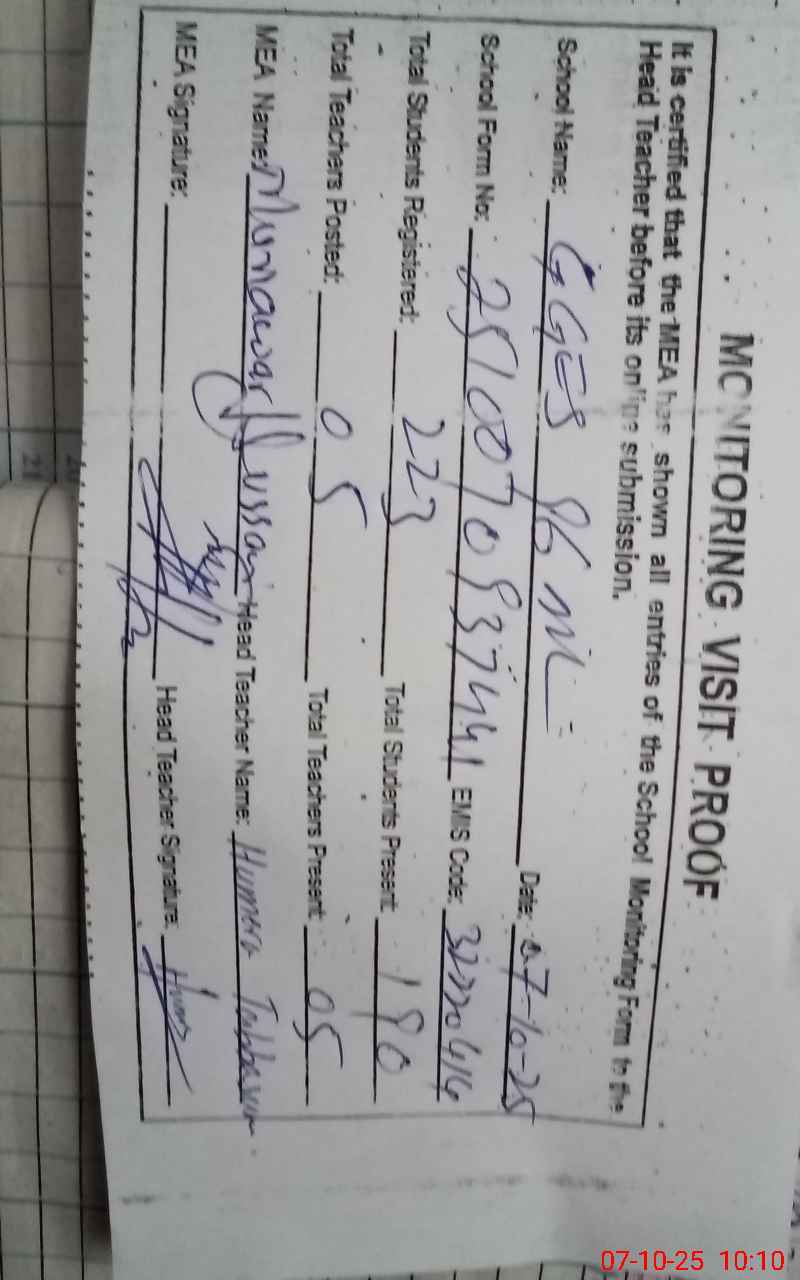 MONITORING VISIT PROOF
It is certified that the MEA has shown all entries of the School Monitoring Form to the
Head Teacher before its online submission.
School Name: GGES 86 ML Date: 07-10-25
School Form No: EMIS Code:
Total Students Registered: 223 Total Students Present: 190
Total Teachers Posted: 05 Total Teachers Present: 05
MEA Name: Munawar Hussain Head Teacher Name: Humera Tabbasum
MEA Signature: Head Teacher Signature:
07-10-25 10:10